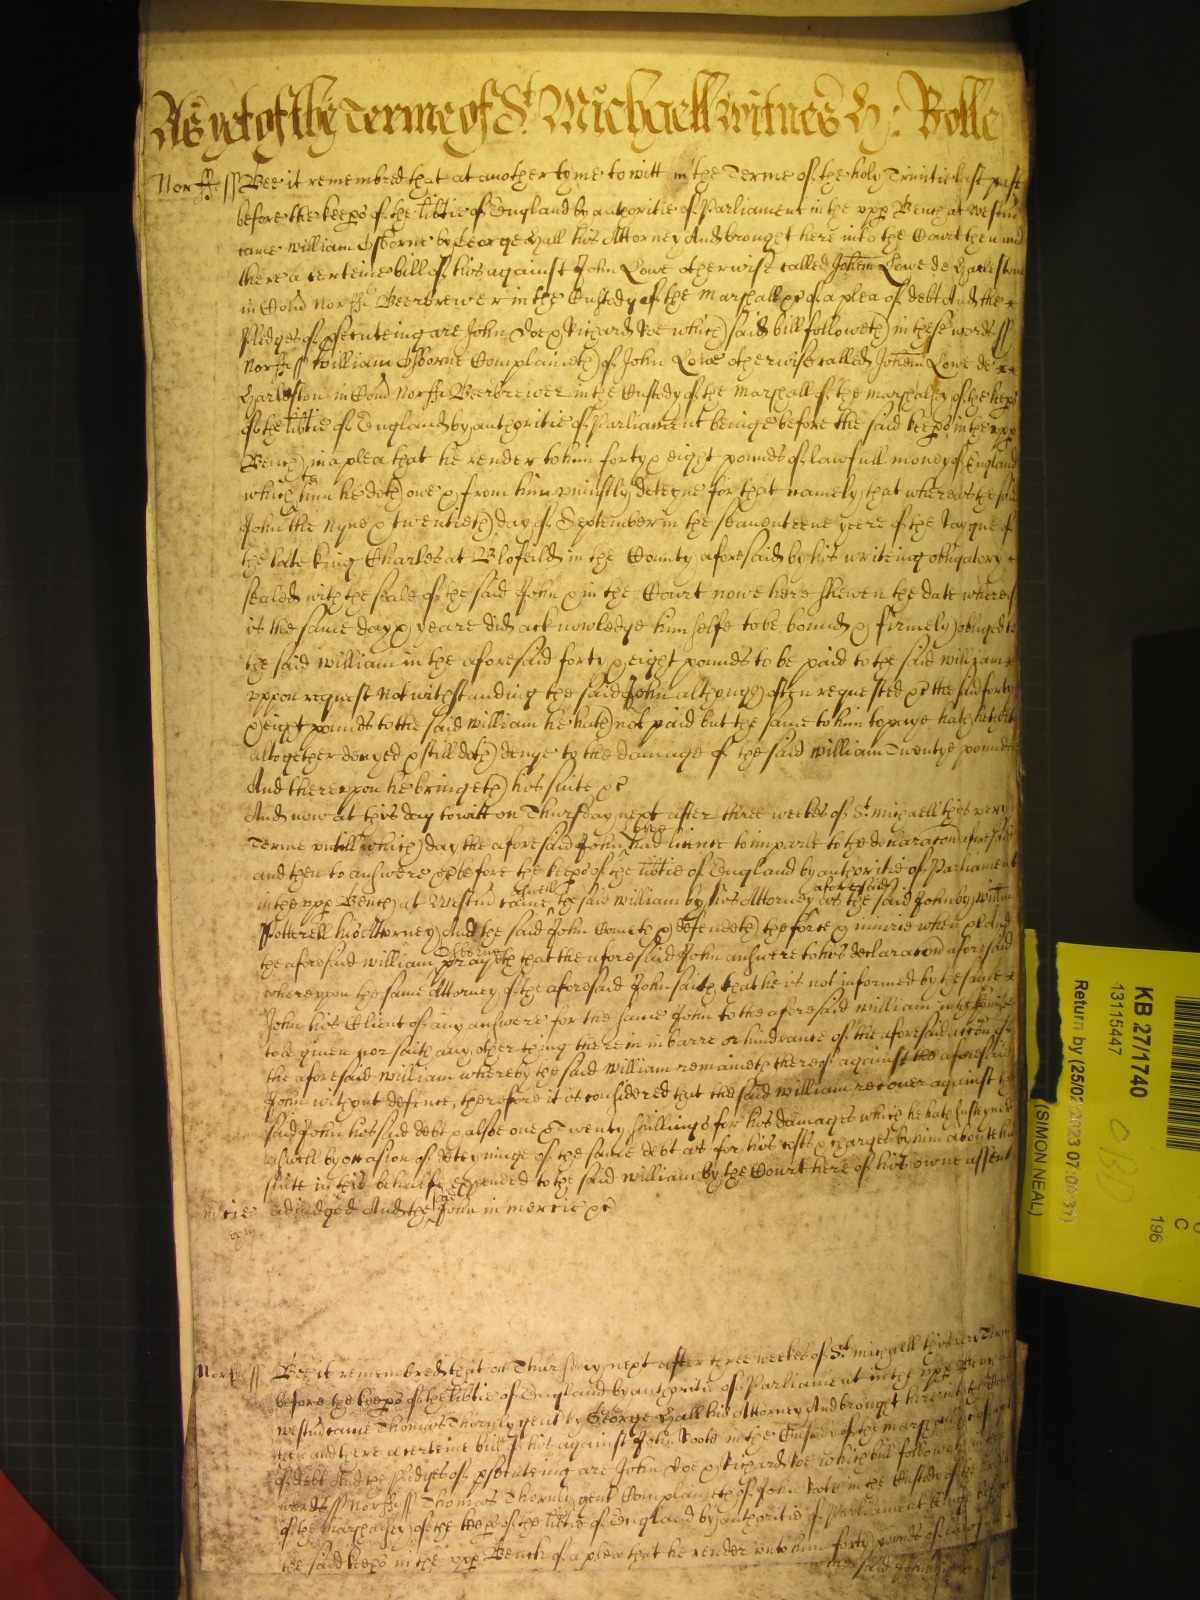 As yet of the Terme of St. Michaell witnes H: Rolle
Norff ss Bee it remembred that at another tyme to witt in the Terme of the holy Trinitie last past
before the keeps of the libtie of England by authoritie of Parliament in the upp Bench at Westm
came William Osborne by George Hall his Attorney And brought here into the Court then and
there a certeine bill of his against John Lowe otherwise called Johem Lowe de Harleston
in Com Norff Beerbrewer in the Custody of the Marshall &c of a plea of debt And the
Pledges of psecuteing are John Doe & Richard Roe which said bill followeth in these words ss
Norff ss William Osborne Complaineth of John Lowe otherwise called Johem Lowe de
Harleston in Com Norff Beerbrewer in the Custody of the Marshall of the Marshalsey of the keeps
of the libtie of England by authoritie of Parliament beinge before the said keeps in the upp
Bench in a plea that he render to him forty & eight pounds of lawfull money of England
which him he doth owe & from him uniustly deteyne for that namely that whereas the said
John the nyne & twentieth day of September in the seaventeene yeere of the Raigne of
the late king Charles at Blofeild in the County aforesaid by his writeing obligatory
sealed with the seale of the said John & in the Court nowe here shewen the date whereof
is the same day & yeare did acknowledge himselfe to be bound & firmely obliged to
the said William in the aforesaid forty & eight pounds to be paid to the said William
uppon request Notwithstanding the said John although often requested &c the said forty
& eight pounds to the said William he hath not paid but the same to him to paye hath hitherto
altogether denyed & still doth denye to the damage of the said William Twentye pounds
And thereuppon he bringeth his suite &c
And now at this day to witt on Thursday next after three weekes of St. Michaell this very
Terme untill which day the aforesaid John Lowe had licence to imparle to the declaracon aforesaid
and then to answere &c before the keeps of the libtie of England by authoritie of Parliament
in the upp Bench at Westm came aswell the said William by his Attorney aforesaid as the said John by Willm
Potterell his Attorney And the said John Cometh & defendeth the force & iniurie when &c And
the aforesaid William Osborne prayeth that the aforesaid John answere to his declaracon aforesaid
whereupon the same Attorney of the aforesaid John saith that he is not informed by the same
John his Client of any answere for the same John to the aforesaid William in the premises
to be given nor saith any other thing therein in barre or hindrance of the aforesaid accon of
the aforesaid William whereby the said William remaineth thereof against the aforesaid
John without defence, therefore it is considered that the said William recover against the
said John his said debt & alsoe one & Twenty shillings for his damages which he hath susteyned
aswell by occasion of deteyninge of the same debt as for his costs & charges by him about his
suite in this behalfe expended to the said William by the Court here of his owne assent
adiudged And the said John in mercie &c
m'cie
Norff ss Bee it remembred that on Thursday next after three weekes of St. Michaell this very Terme
before the keeps of the libtie of England by authoritie of Parliament in the upp Bench
Westm came Thomas Thornly gent by George Hall his Attorney And brought here into the Court
then and there a certeine bill of his against John in the Custody of the Marshall &c of a plea
of debt And the Pledges of psecuteing are John Doe & Richard Roe which bill followeth in these
words ss Norff ss Thomas Thornly gent Complaineth of John in the Custody of the Marshall
of the Marshalsey of the keeps of the libtie of England by authoritie of Parliament beinge before
the said keeps in the upp Bench of a plea that he render unto him forty pounds of lawfull
said John
KB 27/1740
13115447
Return by (25/02/2023 07:00:31)
(SIMON NEAL)
C
196